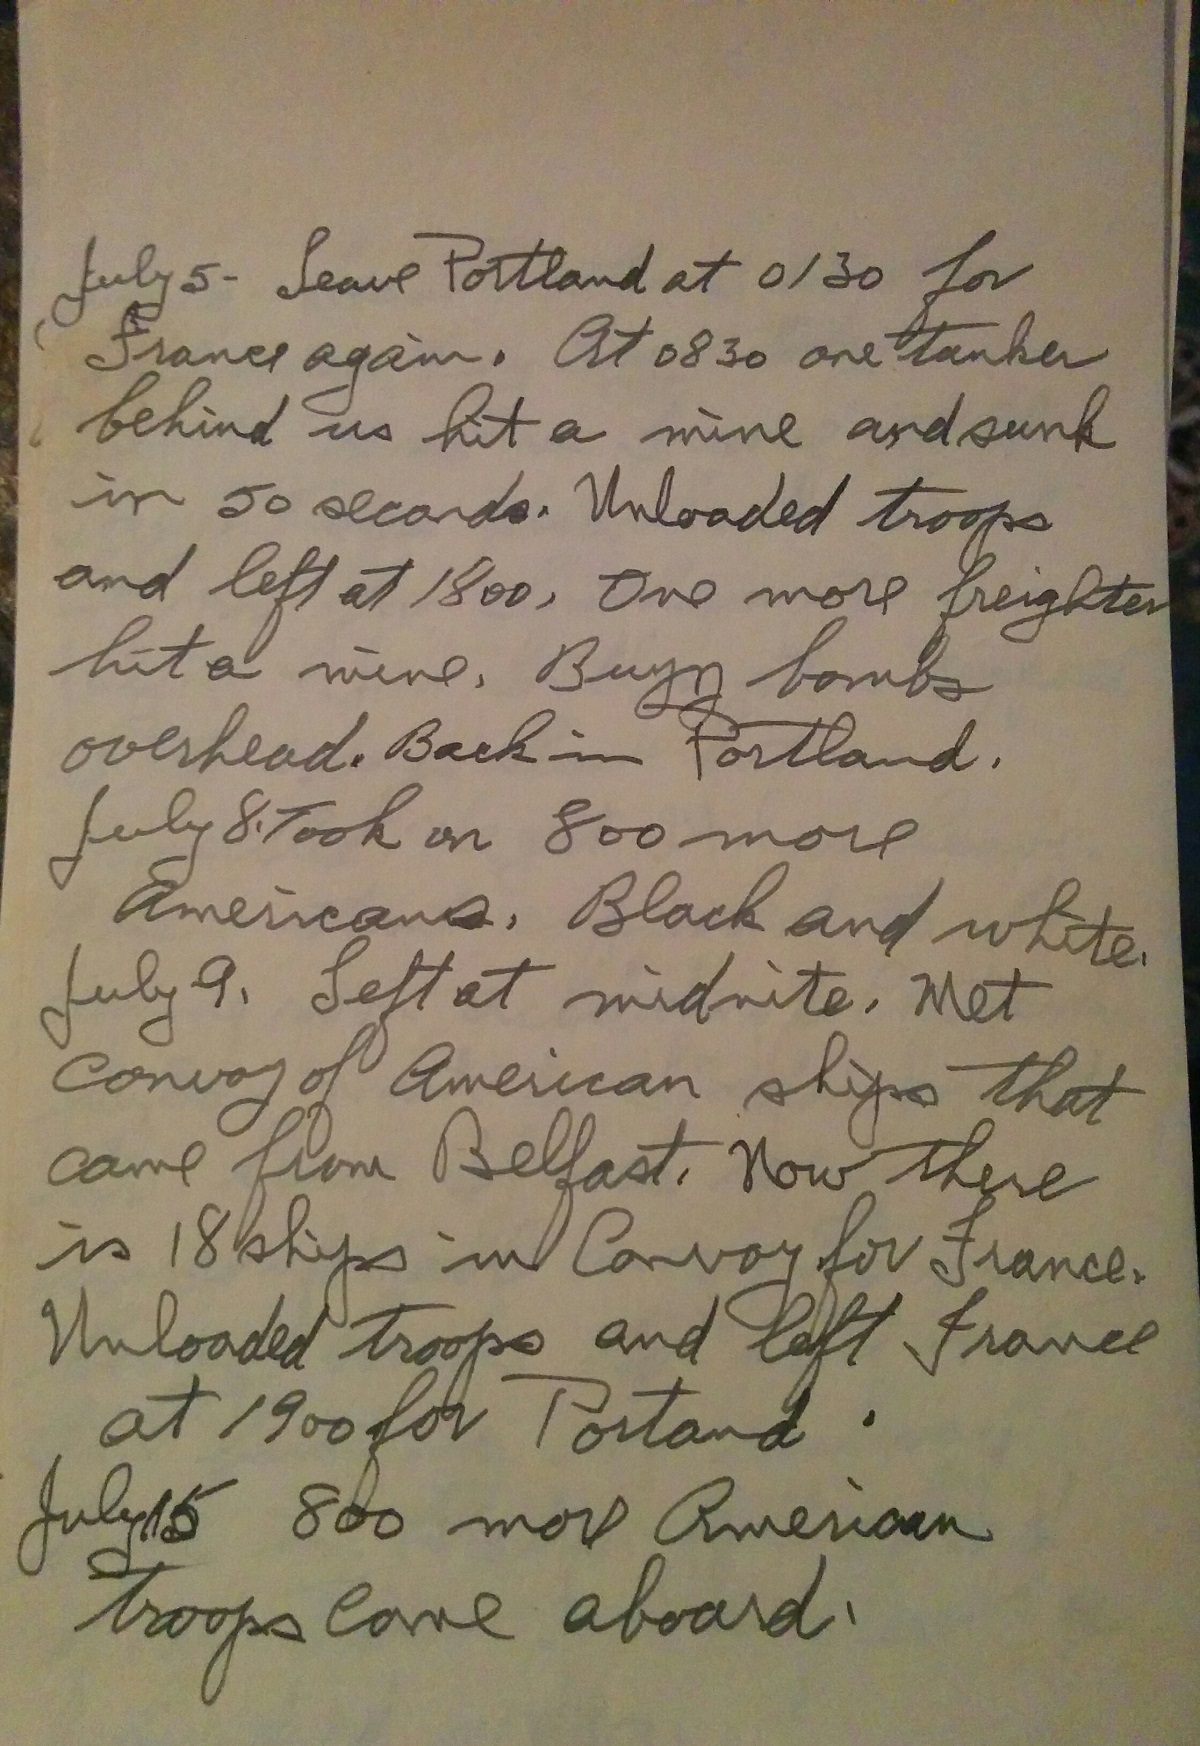 July 5- Leave Portland at 0130 for
France again. At 0830 one tanker
behind us hit a mine and sunk
in 50 seconds. Unloaded troops
and left at 1800. One more freighter
hit a mine. Buzz bombs
overhead. Back in Portland.
July 8. Took on 800 more
Americans. Black and white.
July 9. Left at midnite. Met
convoy of American ships that
came from Belfast. Now there
is 18 ships in Convoy for France.
Unloaded troops and left France
at 1900 for Portand.
July 15 800 more American
troops come aboard.